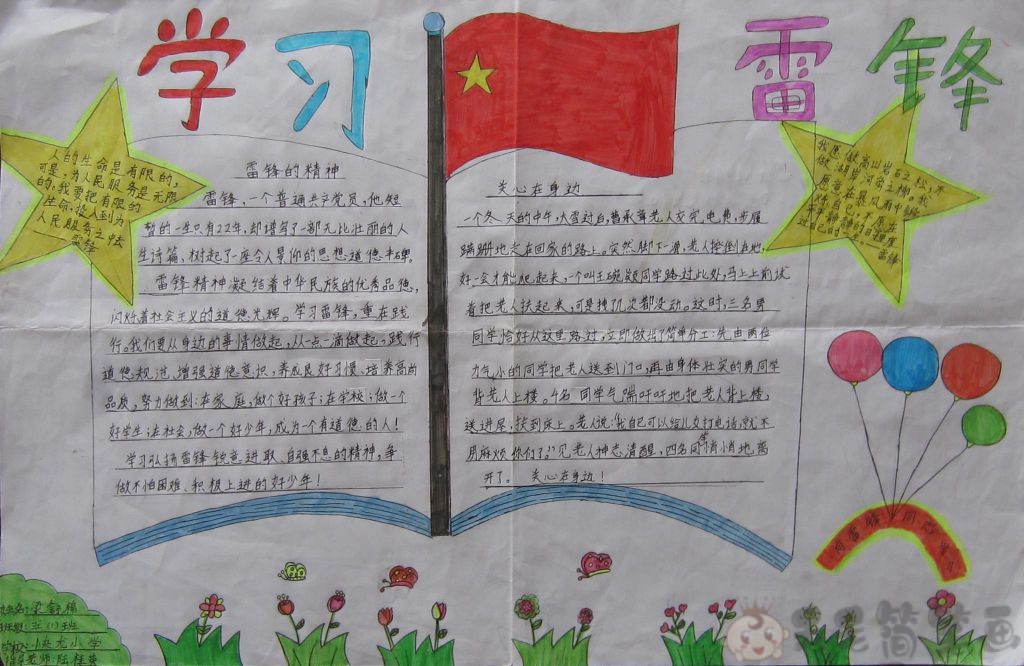 学习
雷锋
人的生命是有限的,
可是,为人民服务是无限
的,我要把有限的
生命,投入到为
人民服务之中去
雷锋
雷锋的精神
雷锋,一个普通共产党员,他短
暂的一生只有22年,却谱写了一部无比壮丽的人
生诗篇,树起了一座令人景仰的思想道德丰碑。
雷锋精神凝结着中华民族的优秀品德,
闪好着社会主义的道德光辉。学习雷锋,重在践
行。我们要从身边的事情做起,从一点一滴做起,践行
道德规范,增强道德意识,养成良好习惯,培养高尚
品质,努力做到:在家庭,做个好孩子;在学校;做一个
好学生;在社会,做一个好少年,成为一个有道德的人!
学习弘扬雷锋锐意进取、自强不息的精神,争
做不怕困难、积极上进的好少年!
关心在身边
一个冬天的中午,大雪过后,曹承菁老人交完电费,步履
蹒跚地走在回家的路上。突然脚下一滑,老人摔倒在地,
好一会才能爬起来,一个叫王晓凝同学路过此处,马上上前试
着把老人扶起来,可是拽几次都没动。这时,三名男
同学恰好从这里路过,立即做出了简单分工:先由两位
力气小的同学把老人送到门口,再由身体壮实的男同学
背老人上楼。4名同学气喘吁吁地把老人背上楼,
送进屋,扶到床上。老人说:“我自己可以给儿女打电话,就不
用麻烦你们了,”见老人神志清醒,四名同学悄悄地离
开了。关心在身边!
我愿做高山岩石之松,不
做湖岸河旁之柳。我
愿意在暴风雨中锻
炼自己,不愿在
平平静静的日子里度
过自己的一生。
雷锋
向雷锋同志学习
姓名:
班级:五(1)班
学校:快龙小学
指导老师:陆桂英